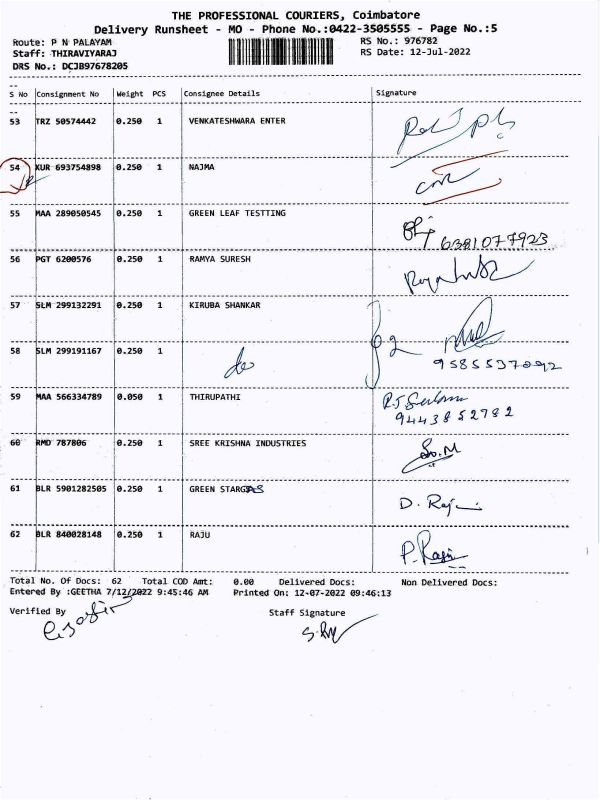 THE PROFESSIONAL COURIERS, Coimbatore
Delivery Runsheet - MO - Phone No.:0422-3505555 - Page No.:5
Route: P N PALAYAM RS No.: 976782
Staff: THIRAVIYARAJ RS Date: 12-Jul-2022
DRS No.: DCJB97678205
S No Consignment No Weight PCS Consignee Details Signature
53 TRZ 50574442 0.250 1 VENKATESHWARA ENTER
54 KUR 693754898 0.250 1 NAJMA
55 MAA 289050545 0.250 1 GREEN LEAF TESTTING
6381077923
56 PGT 6200576 0.250 1 RAMYA SURESH
57 SLM 299132291 0.250 1 KIRUBA SHANKAR
58 SLM 299191167 0.250 1 do 2
9585537092
59 MAA 566334789 0.050 1 THIRUPATHI
9443852782
60 RMD 787806 0.250 1 SREE KRISHNA INDUSTRIES
61 BLR 5901282505 0.250 1 GREEN STARGAS D. Raj
62 BLR 840028148 0.250 1 RAJU P. Raju
Total No. Of Docs: 62 Total COD Amt: 0.00 Delivered Docs: Non Delivered Docs:
Entered By :GEETHA 7/12/2022 9:45:46 AM Printed On: 12-07-2022 09:46:13
Verified By Staff Signature